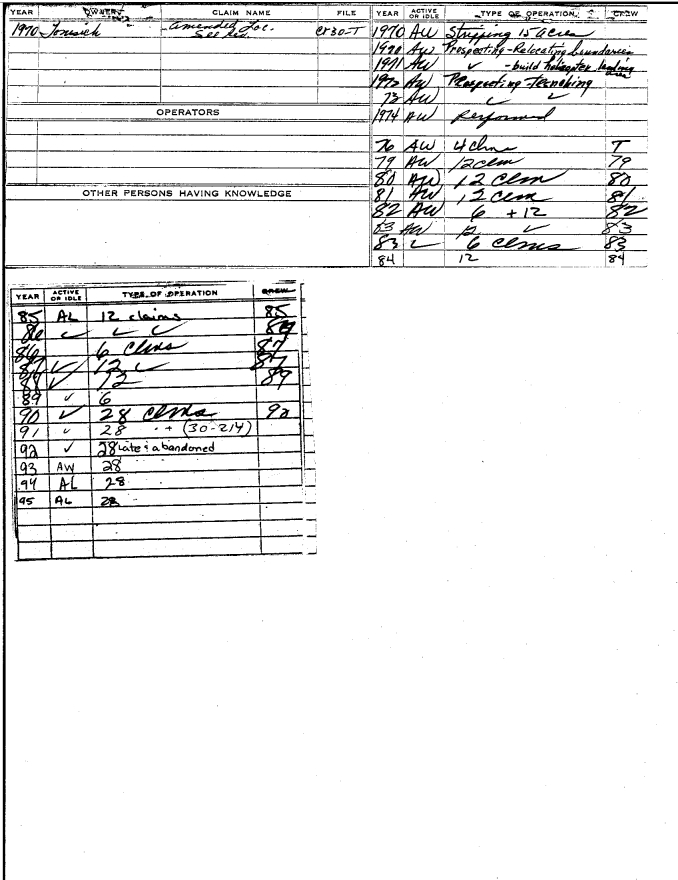 YEAR OWNERS CLAIM NAME FILE
1970 Tonsich - Amended Loc. CR30-T
OPERATORS
OTHER PERSONS HAVING KNOWLEDGE
YEAR ACTIVE OR IDLE TYPE OF OPERATION CREW
1970 AW Stripping 15 acres
1970 AW Prospecting - Relocating boundaries
1971 AW ✓ - build helicopter landing area
1972 AW Prospecting - Trenching
73 AW ✓ ✓
1974 AW Performed
76 AW 4 clms T
79 AW 12 clm 79
80 AW 12 clm 80
81 AW 12 clm 81
82 AW 6 + 12 82
83 AW 12 ✓ 83
83 ✓ 6 clms 83
84 12 84
YEAR ACTIVE OR IDLE TYPE OF OPERATION CREW
85 AL 12 claims 85
86 ✓ ✓ ✓
86 6 clms 87
12 ✓ 87
✓ 12 89
89 ✓ 6
90 ✓ 28 clms 92
91 ✓ 28 + (30-214)
92 ✓ 28 Late & abandoned
93 AW 28
94 AL 28
95 AL 28